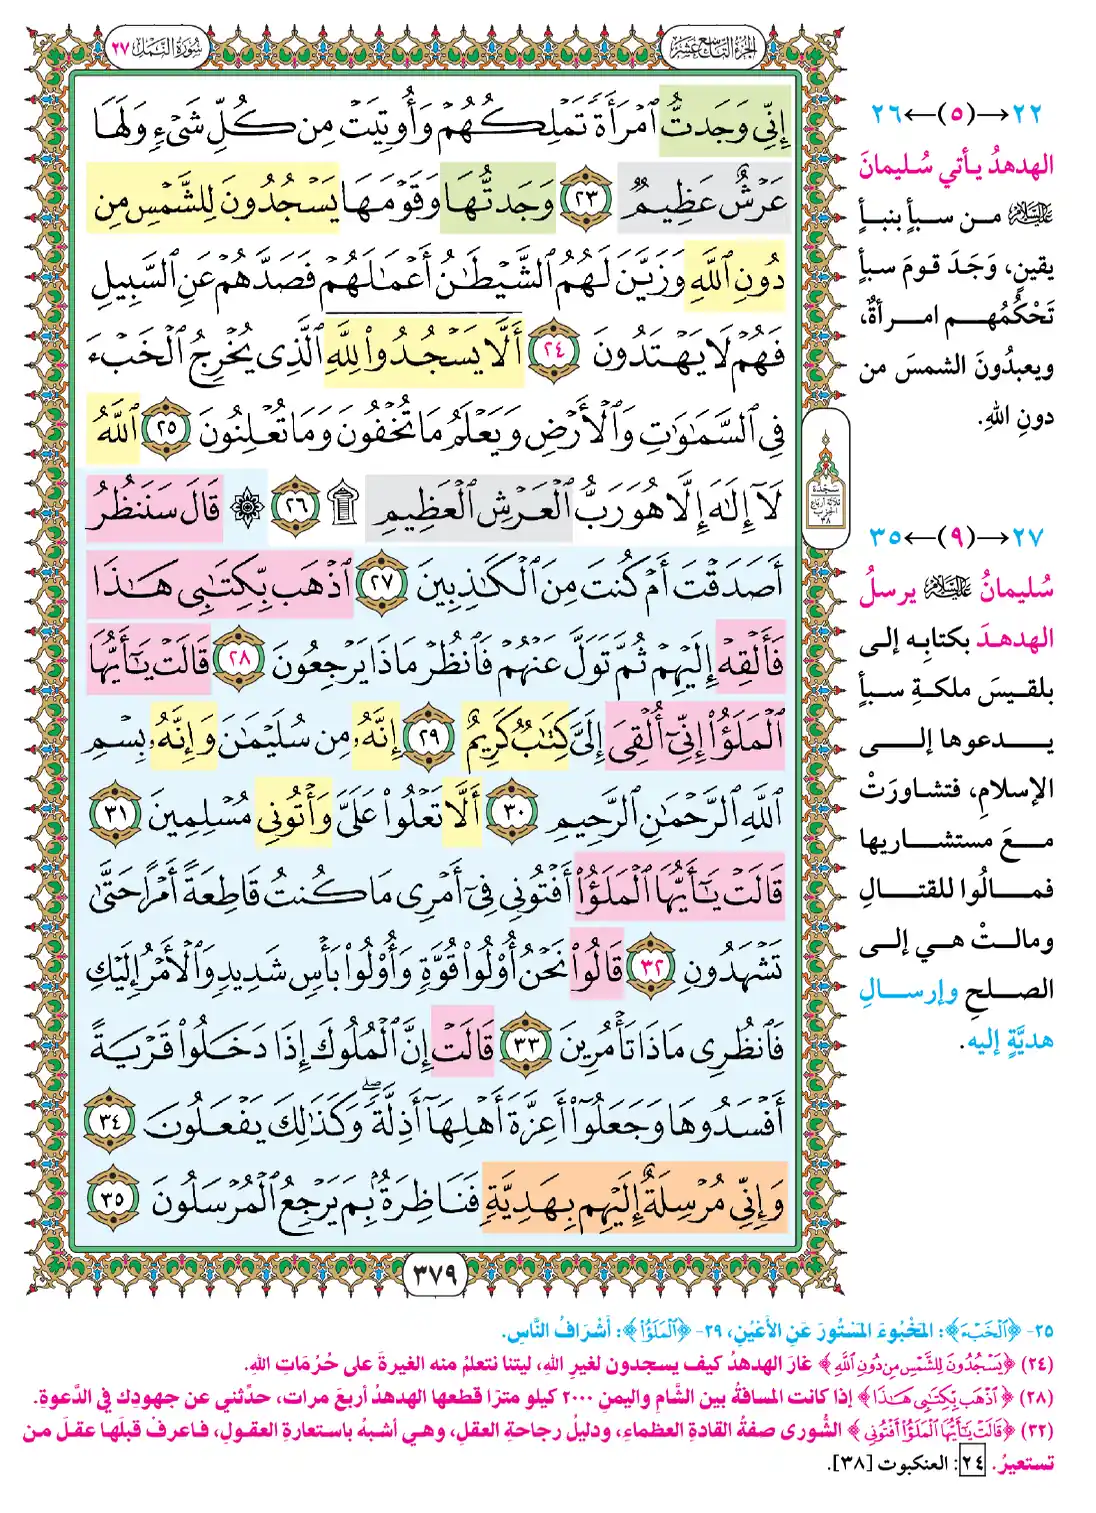 الجزء التاسع عشر
سورة النمل ٢٧
إِنِّي وَجَدتُّ ٱمْرَأَةً تَمْلِكُهُمْ وَأُوتِيَتْ مِن كُلِّ شَيْءٍ وَلَهَا
عَرْشٌ عَظِيمٌ ٢٣ وَجَدتُّهَا وَقَوْمَهَا يَسْجُدُونَ لِلشَّمْسِ مِن
دُونِ ٱللَّهِ وَزَيَّنَ لَهُمُ ٱلشَّيْطَـٰنُ أَعْمَـٰلَهُمْ فَصَدَّهُمْ عَنِ ٱلسَّبِيلِ
فَهُمْ لَا يَهْتَدُونَ ٢٤ أَلَّا يَسْجُدُوا۟ لِلَّهِ ٱلَّذِي يُخْرِجُ ٱلْخَبْءَ
فِي ٱلسَّمَـٰوَٰتِ وَٱلْأَرْضِ وَيَعْلَمُ مَا تُخْفُونَ وَمَا تُعْلِنُونَ ٢٥ ٱللَّهُ
لَآ إِلَـٰهَ إِلَّا هُوَ رَبُّ ٱلْعَرْشِ ٱلْعَظِيمِ ۩ ٢٦ ۞ قَالَ سَنَنظُرُ
أَصَدَقْتَ أَمْ كُنتَ مِنَ ٱلْكَـٰذِبِينَ ٢٧ ٱذْهَب بِّكِتَـٰبِي هَـٰذَا
فَأَلْقِهْ إِلَيْهِمْ ثُمَّ تَوَلَّ عَنْهُمْ فَٱنظُرْ مَاذَا يَرْجِعُونَ ٢٨ قَالَتْ يَـٰٓأَيُّهَا
ٱلْمَلَؤُا۟ إِنِّيٓ أُلْقِيَ إِلَيَّ كِتَـٰبٌ كَرِيمٌ ٢٩ إِنَّهُۥ مِن سُلَيْمَـٰنَ وَإِنَّهُۥ بِسْمِ
ٱللَّهِ ٱلرَّحْمَـٰنِ ٱلرَّحِيمِ ٣٠ أَلَّا تَعْلُوا۟ عَلَيَّ وَأْتُونِي مُسْلِمِينَ ٣١
قَالَتْ يَـٰٓأَيُّهَا ٱلْمَلَؤُا۟ أَفْتُونِي فِيٓ أَمْرِي مَا كُنتُ قَاطِعَةً أَمْرًا حَتَّىٰ
تَشْهَدُونِ ٣٢ قَالُوا۟ نَحْنُ أُو۟لُوا۟ قُوَّةٍ وَأُو۟لُوا۟ بَأْسٍ شَدِيدٍ وَٱلْأَمْرُ إِلَيْكِ
فَٱنظُرِي مَاذَا تَأْمُرِينَ ٣٣ قَالَتْ إِنَّ ٱلْمُلُوكَ إِذَا دَخَلُوا۟ قَرْيَةً
أَفْسَدُوهَا وَجَعَلُوٓا۟ أَعِزَّةَ أَهْلِهَآ أَذِلَّةً ۖ وَكَذَٰلِكَ يَفْعَلُونَ ٣٤
وَإِنِّي مُرْسِلَةٌ إِلَيْهِم بِهَدِيَّةٍ فَنَاظِرَةٌۢ بِمَ يَرْجِعُ ٱلْمُرْسَلُونَ ٣٥
٣٧٩
٢٢→(٥)←٢٦
الهدهدُ يأتي سُليمانَ
عليه السلام من سبأٍ بنبأٍ
يقينٍ، وَجَدَ قومَ سبأٍ
تَحْكُمُهم امرأةٌ،
ويعبدُونَ الشمسَ من
دونِ اللهِ.
سجدة
ثلاثة أرباع
الحزب
٣٨
٢٧→(٩)←٣٥
سُليمانُ عليه السلام يرسلُ
الهدهدَ بكتابِه إلى
بلقيسَ ملكةِ سبأٍ
يدعوها إلى
الإسلامِ، فتشاورَتْ
معَ مستشاريها
فمالُوا للقتالِ
ومالتْ هي إلى
الصلحِ وإرسالِ
هديَّةٍ إليه.
٢٥- ﴿ٱلْخَبْءَ﴾: المَخْبُوءَ المَسْتُورَ عَنِ الأَعْيُنِ، ٢٩- ﴿ٱلْمَلَؤُا۟﴾: أَشْرَافُ النَّاسِ.
(٢٤) ﴿يَسْجُدُونَ لِلشَّمْسِ مِن دُونِ ٱللَّهِ﴾ غارَ الهدهدُ كيف يسجدون لغيرِ اللهِ، ليتنا نتعلمُ منه الغيرةَ على حُرُمَاتِ اللهِ.
(٢٨) ﴿ٱذْهَب بِّكِتَـٰبِي هَـٰذَا﴾ إذا كانت المسافةُ بين الشَّامِ واليمنِ ٢٠٠٠ كيلو مترًا قطعها الهدهدُ أربعَ مرات، حدِّثني عن جهودِك في الدَّعوةِ.
(٣٢) ﴿قَالَتْ يَـٰٓأَيُّهَا ٱلْمَلَؤُا۟ أَفْتُونِي﴾ الشُّورى صفةُ القادةِ العظماءِ، ودليلُ رجاحةِ العقلِ، وهي أشبهُ باستعارةِ العقولِ، فاعرفْ قبلَها عقلَ من
تستعيرُ. ٢٤: العنكبوت [٣٨].